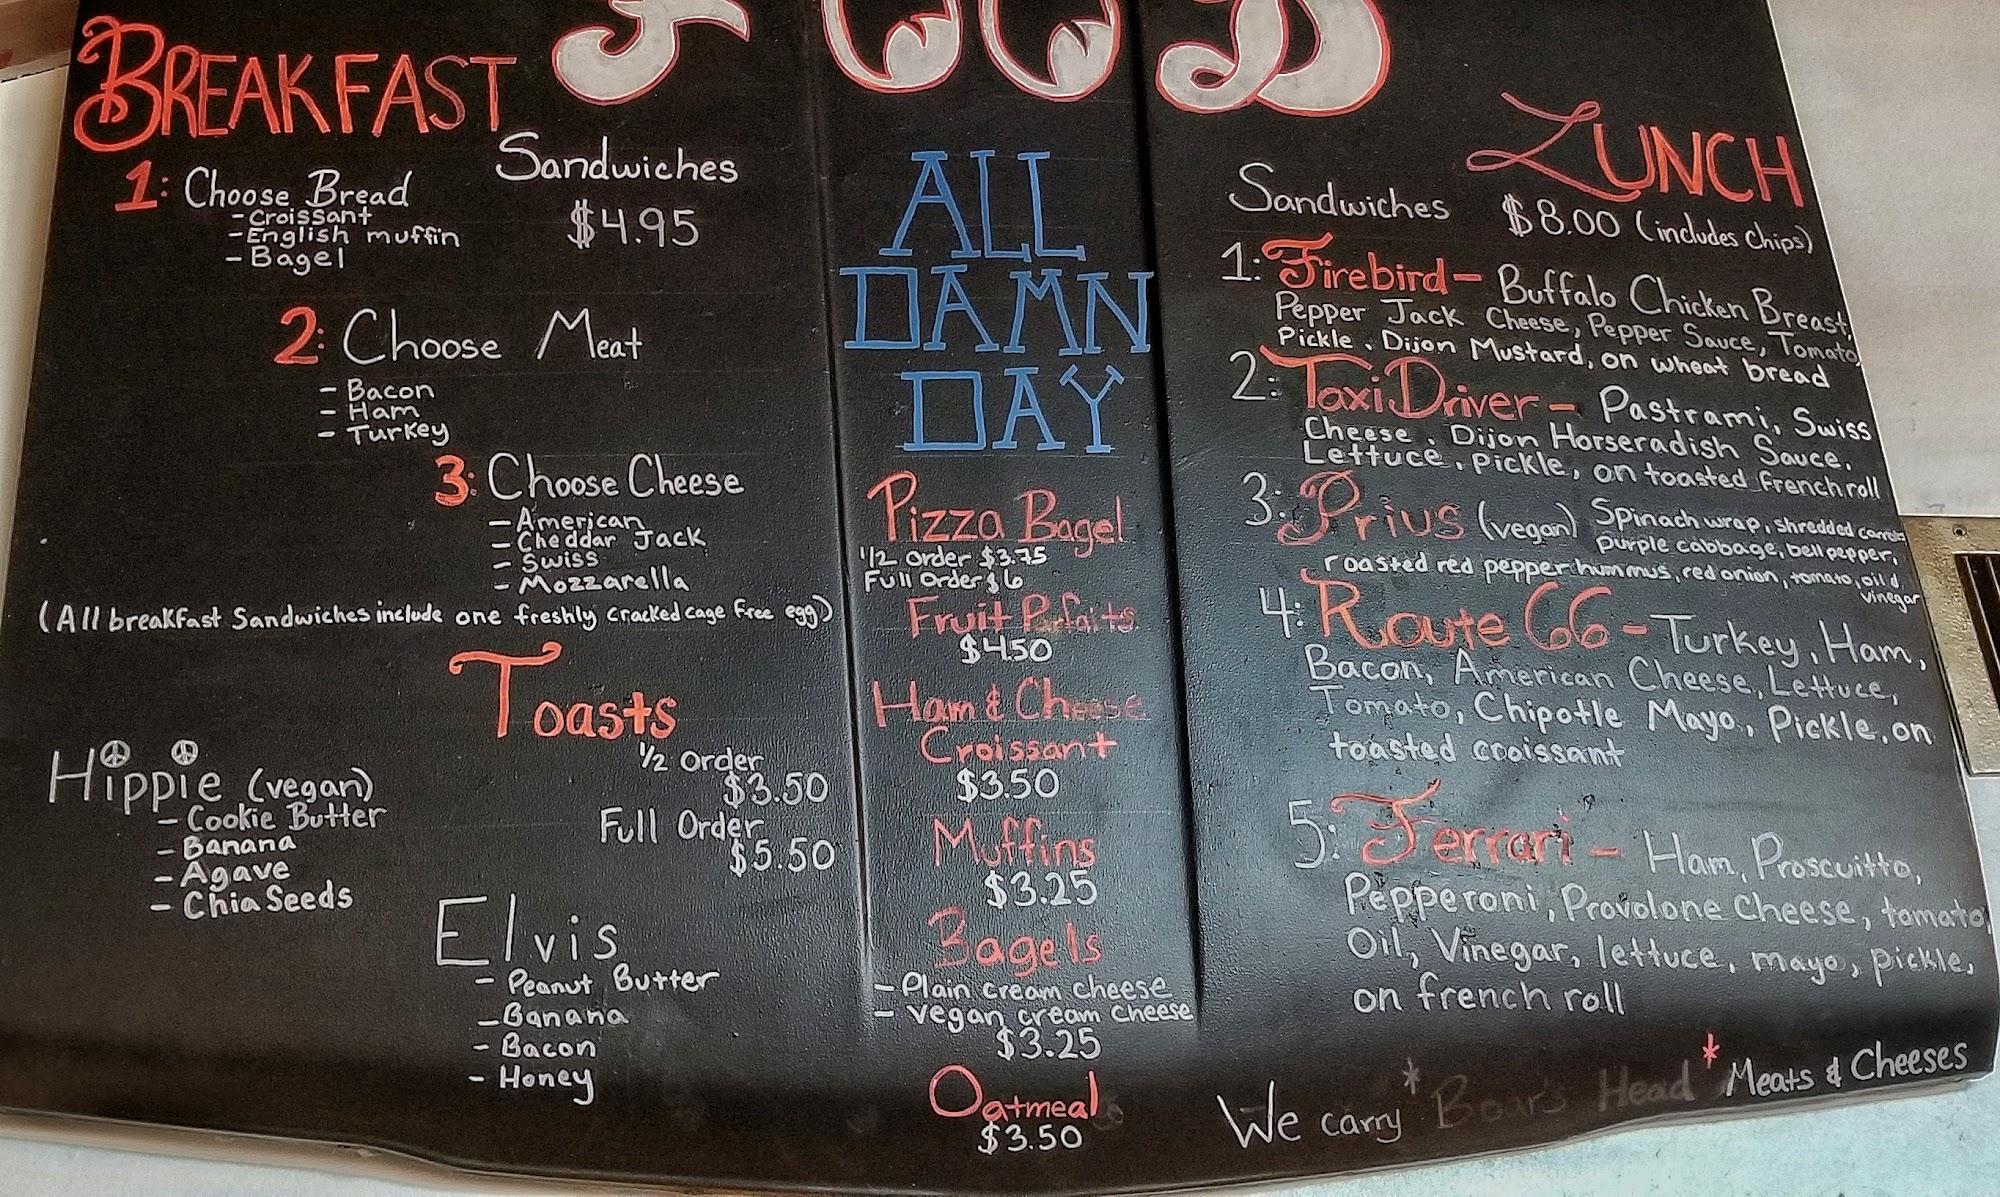 FOOD
BREAKFAST
Sandwiches
$4.95
1: Choose Bread
- Croissant
- English muffin
- Bagel
2: Choose Meat
- Bacon
- Ham
- Turkey
3: Choose Cheese
- American
- Cheddar Jack
- Swiss
- Mozzarella
(All breakfast Sandwiches include one freshly cracked cage free egg)
Toasts
1/2 Order
$3.50
Full Order
$5.50
Hippie (vegan)
- Cookie Butter
- Banana
- Agave
- Chia Seeds
Elvis
- Peanut Butter
- Banana
- Bacon
- Honey
ALL
DAMN
DAY
Pizza Bagel
1/2 Order $3.75
Full Order $6
Fruit Parfaits
$4.50
Ham & Cheese
Croissant
$3.50
Muffins
$3.25
Bagels
- Plain cream cheese
- vegan cream cheese
$3.25
Oatmeal
$3.50
LUNCH
Sandwiches $8.00 (includes chips)
1: Firebird - Buffalo Chicken Breast,
Pepper Jack Cheese, Pepper Sauce, Tomato,
Pickle, Dijon Mustard, on wheat bread
2: Taxi Driver - Pastrami, Swiss
Cheese, Dijon Horseradish Sauce,
Lettuce, pickle, on toasted french roll
3: Prius (vegan) Spinach wrap, shredded carrots
purple cabbage, bell pepper,
roasted red pepper hummus, red onion, tomato, oil &
vinegar
4: Route 66 - Turkey, Ham,
Bacon, American Cheese, Lettuce,
Tomato, Chipotle Mayo, Pickle, on
toasted croissant
5: Ferrari - Ham, Proscuitto,
Pepperoni, Provolone Cheese, tomato
Oil, Vinegar, lettuce, mayo, pickle,
on french roll
We carry * Boar's Head * Meats & Cheeses